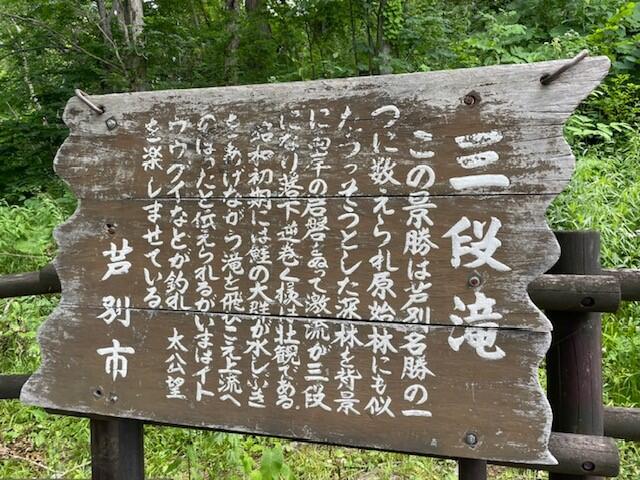 三段滝
この景勝は芦別名勝の一
つに数えられ原始林にも似
たうっそうとした深林を背景
に両岸の岩盤を って激流が三段
になり落下逆巻く様は壮観である。
昭和初期には鮭の大群が水しぶき
をあげながら滝を飛びこえ上流へ
のぼったと伝えられるがいまはイト
ウウグイなどが釣れ 太公望
を楽しませている。
芦別市